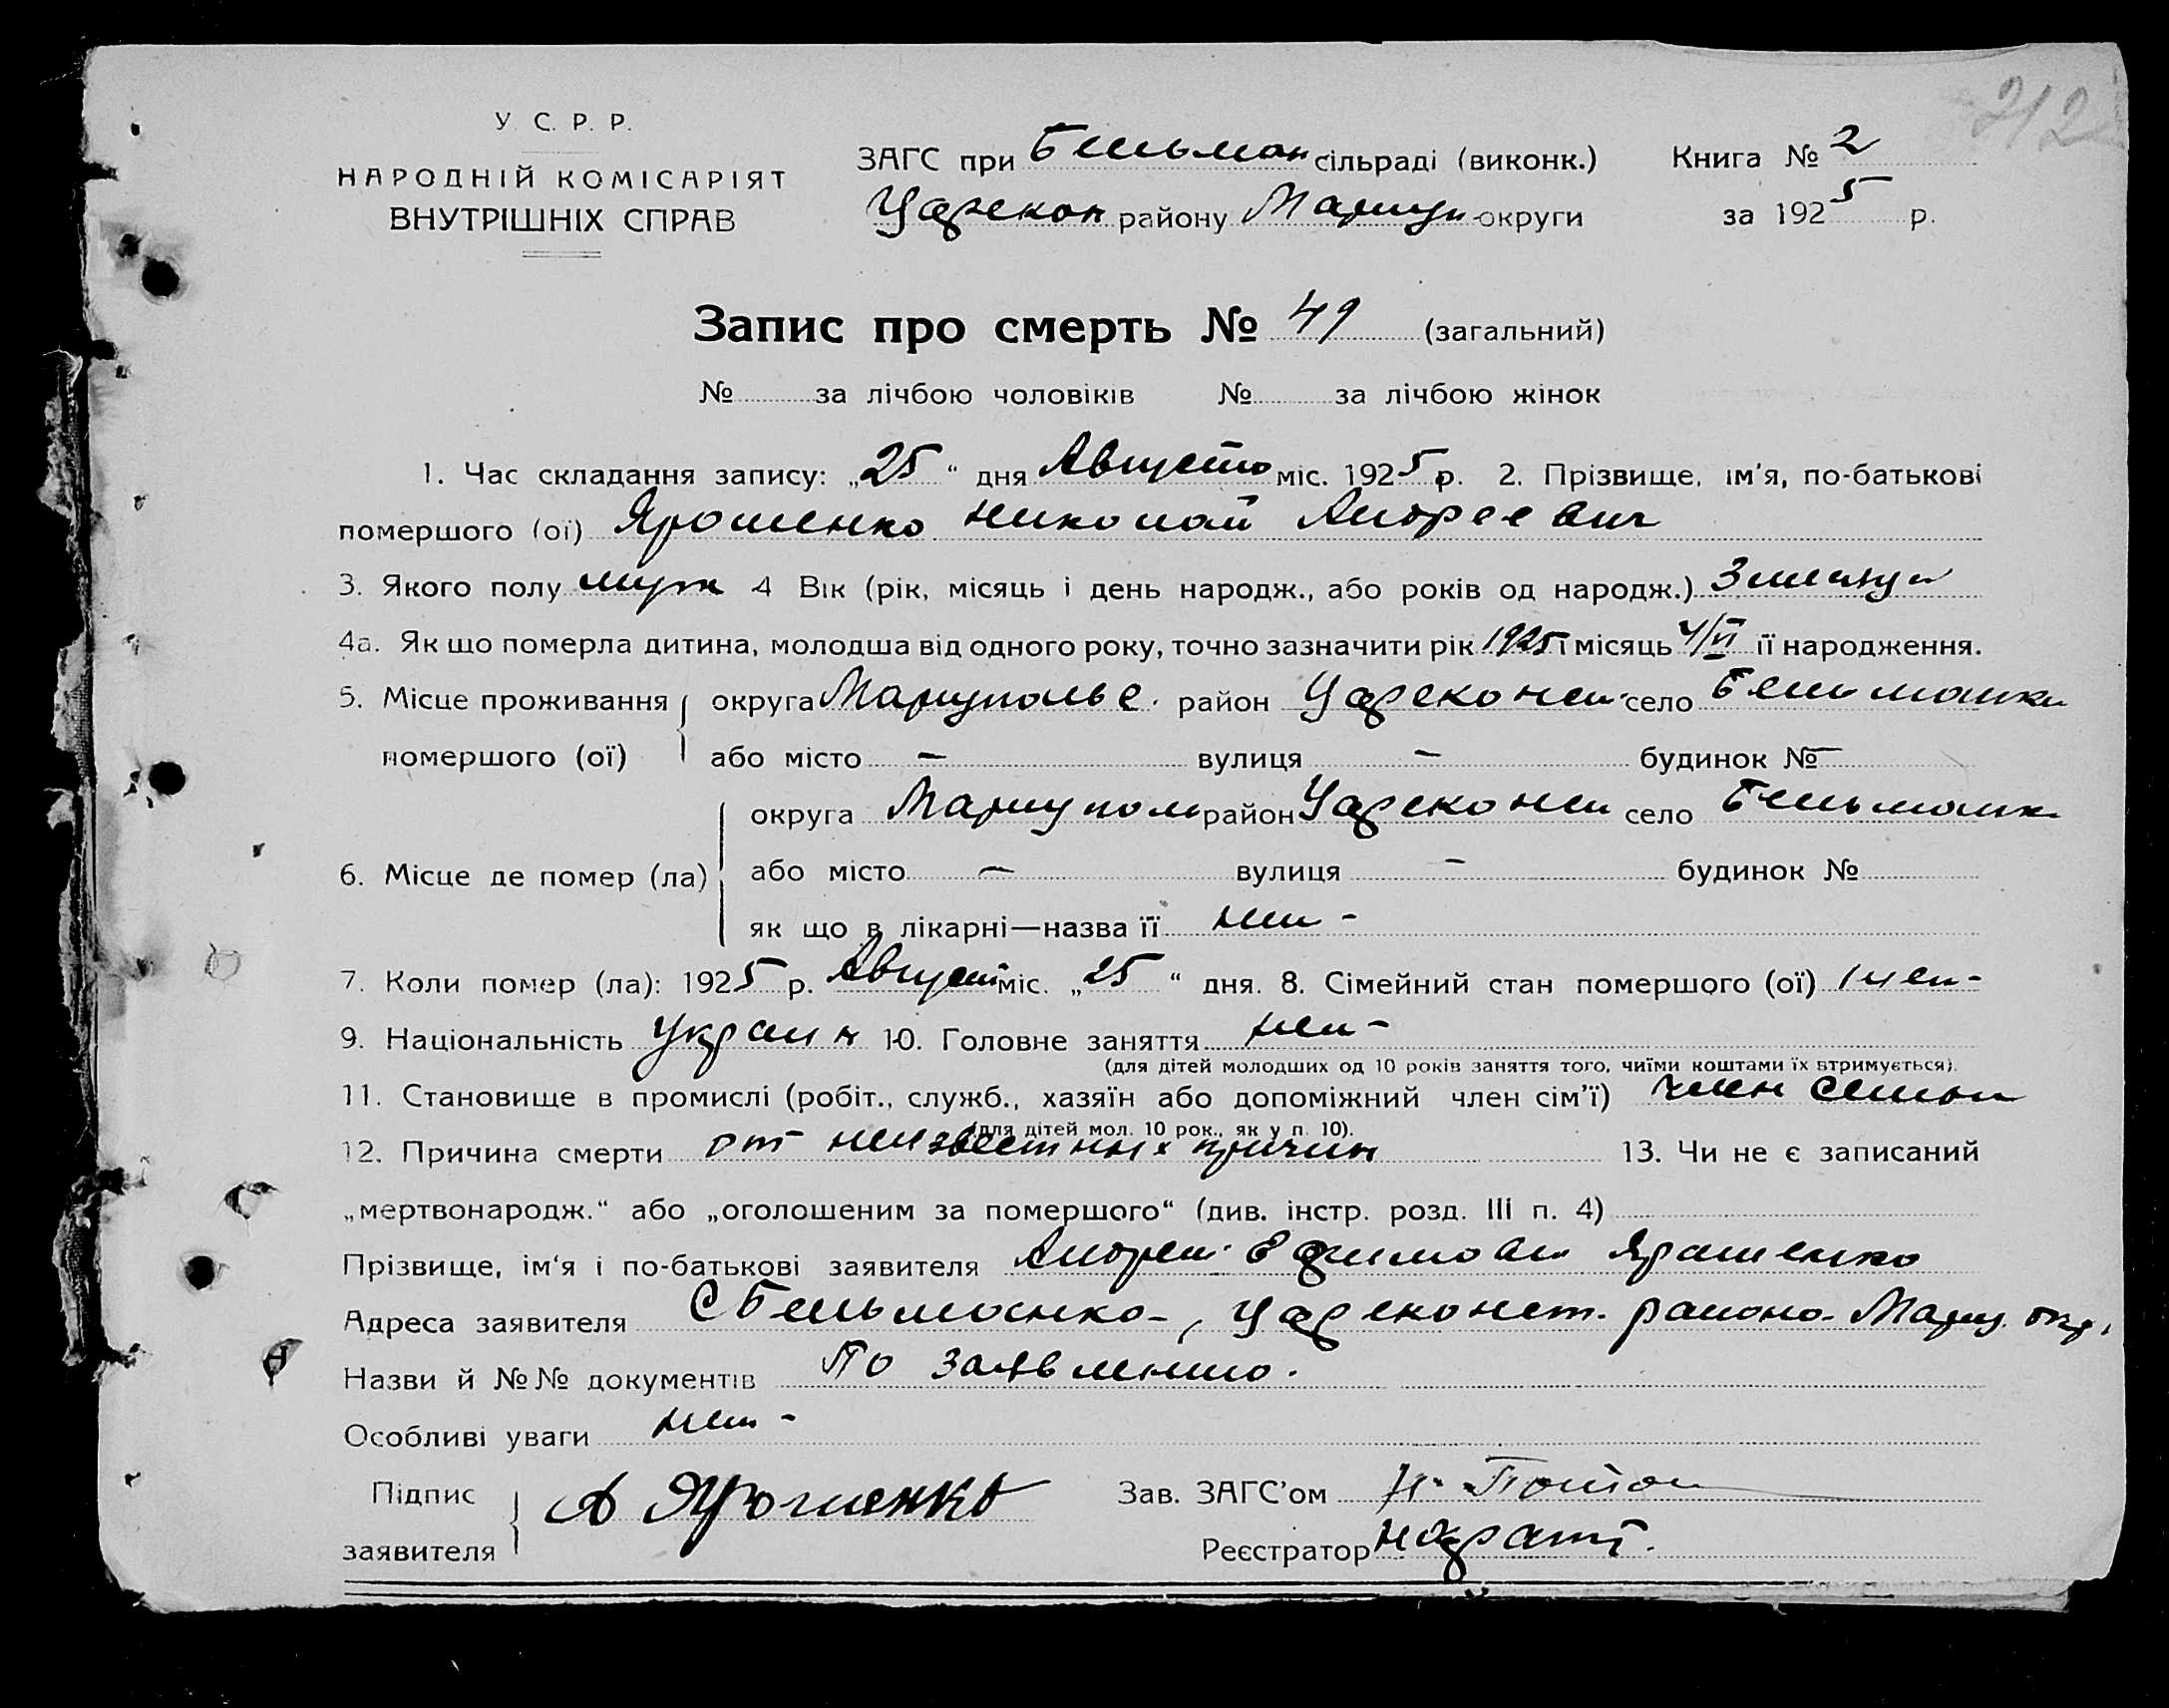 212
У. С. Р. Р.
НАРОДНІЙ КОМІСАРІЯТ
ВНУТРІШНІХ СПРАВ
ЗАГС при Бельман сільраді (виконк.)
Царекон району Мариуп округи
Книга № 2
за 1925 р.
Запис про смерть № 49 (загальний)
№ за лічбою чоловіків № за лічбою жінок
1. Час складання запису: „25“ дня Августа міс. 1925 р. 2. Прізвище, ім'я, по-батькові
помершого (ої) Ярошенко Николай Андреевич
3. Якого полу муж 4 Вік (рік, місяць і день народж., або років од народж.) 3 месяца
4а. Як що померла дитина, молодша від одного року, точно зазначити рік 1925 і місяць 4/VI її народження.
5. Місце проживання помершого (ої) округа Мариупольс. район Цареконст. село Бельманка
або місто — вулиця — будинок № —
6. Місце де помер (ла) округа Мариупол район Цареконст село Бельманк
або місто — вулиця — будинок №
як що в лікарні—назва її нет -
7. Коли помер (ла): 1925 р. Август міс. „25“ дня. 8. Сімейний стан помершого (ої)
9. Національність Украин 10. Головне заняття нет -
(для дітей молодших од 10 років заняття того, чиїми коштами їх втримується).
11. Становище в промислі (робіт., служб., хазяїн або допоміжний член сім'ї) член семьи
(для дітей мол. 10 рок., як у п. 10).
12. Причина смерти от неизвестных причин 13. Чи не є записаний
„мертвонародж.“ або „оголошеним за помершого“ (див. інстр. розд. III п. 4)
Прізвище, ім'я і по-батькові заявителя Андрей Ефимови Ярашенко
Адреса заявителя С Бельманка-, Цареконст. района Мариу. окр.
Назви й №№ документів По заявлению.
Особливі уваги нет -
Підпис заявителя А Ярошенко
Зав. ЗАГС'ом
Реєстратор